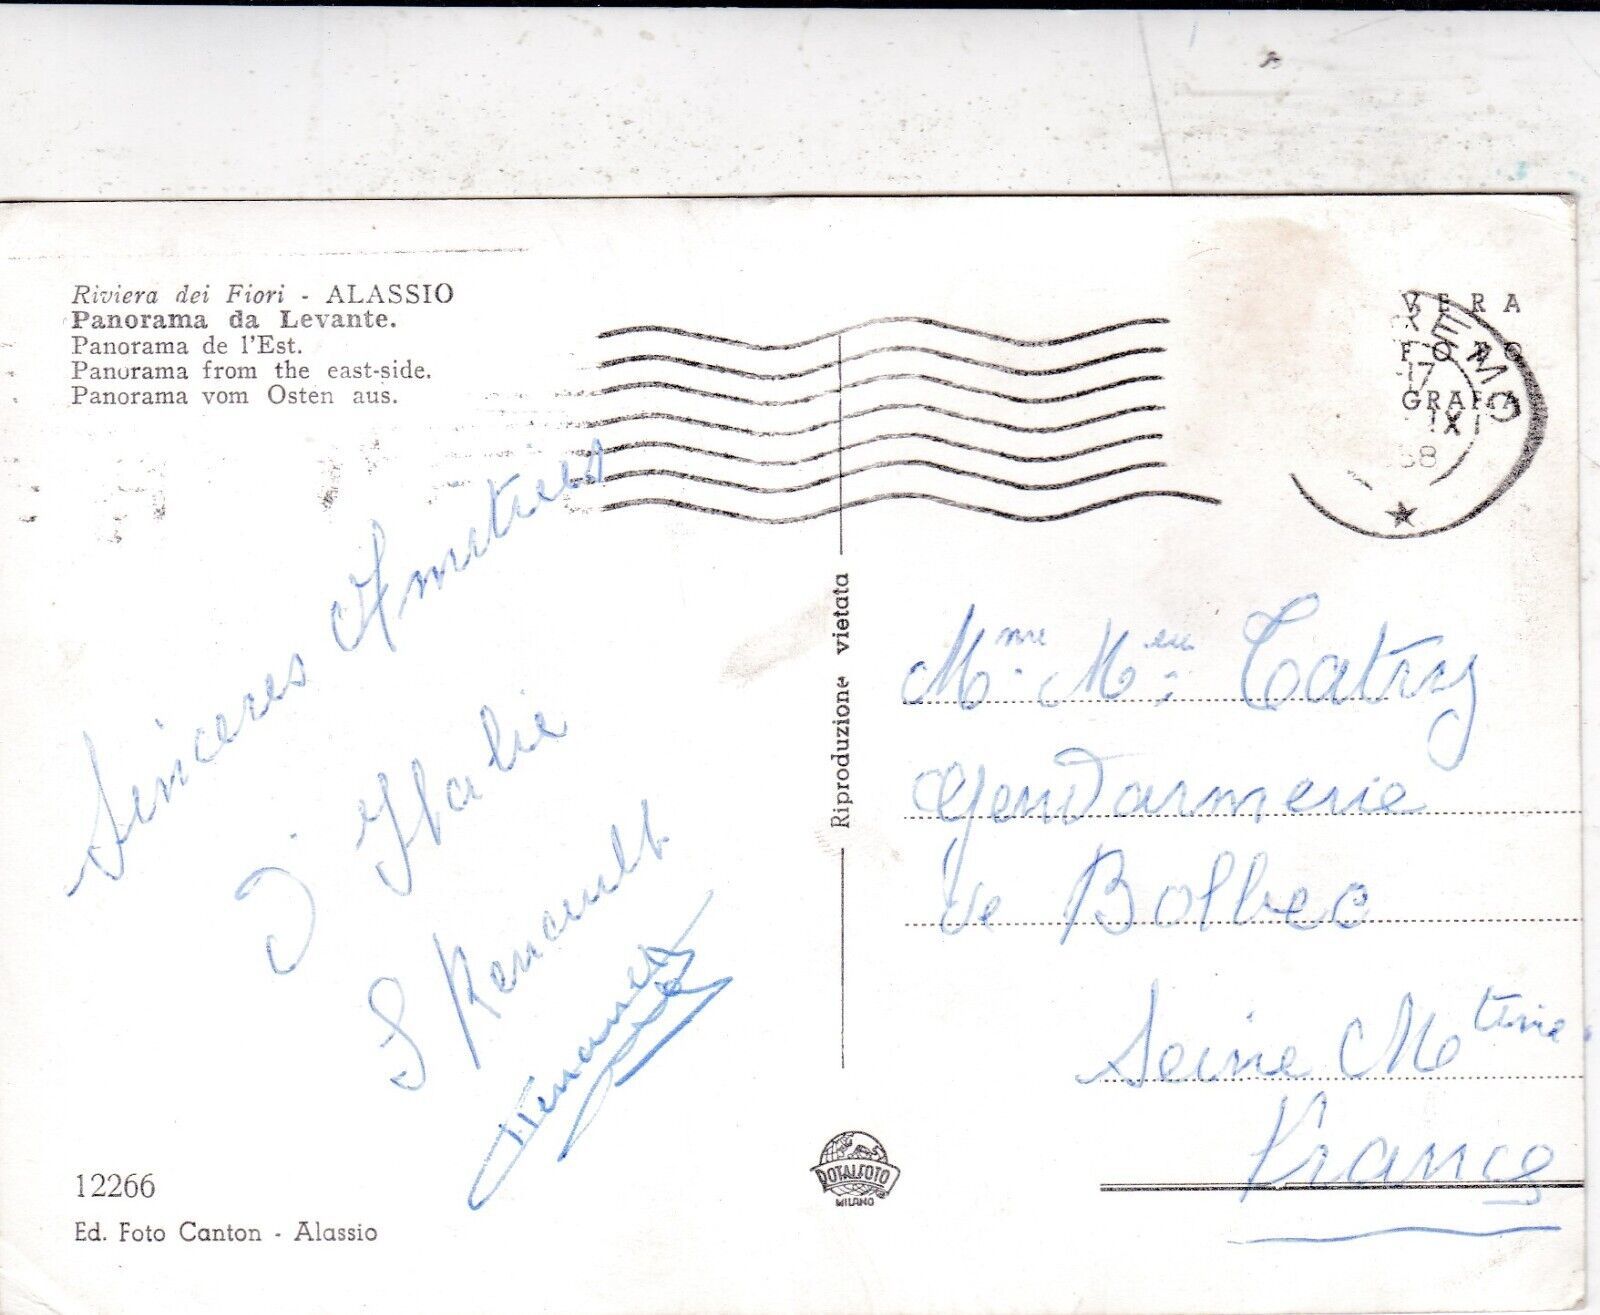 Riviera dei Fiori - ALASSIO
Panorama da Levante.
Panorama de l'Est.
Panorama from the east-side.
Panorama vom Osten aus.
Sinceres Amities
d'Italie
S Renault
12266
Ed. Foto Canton - Alassio
Riproduzione vietata
ROTALFOTO
MILANO
VERA
FOTO
GRAFIA
EMO
17
XI
68
Mme. Meu: Catry
Gendarmerie
de Bolbec
Seine Mtime
France